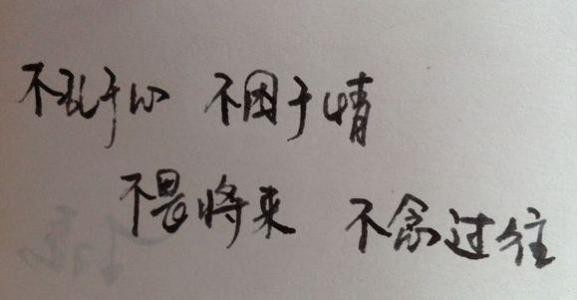 不乱于心 不困于情
不畏将来 不念过往